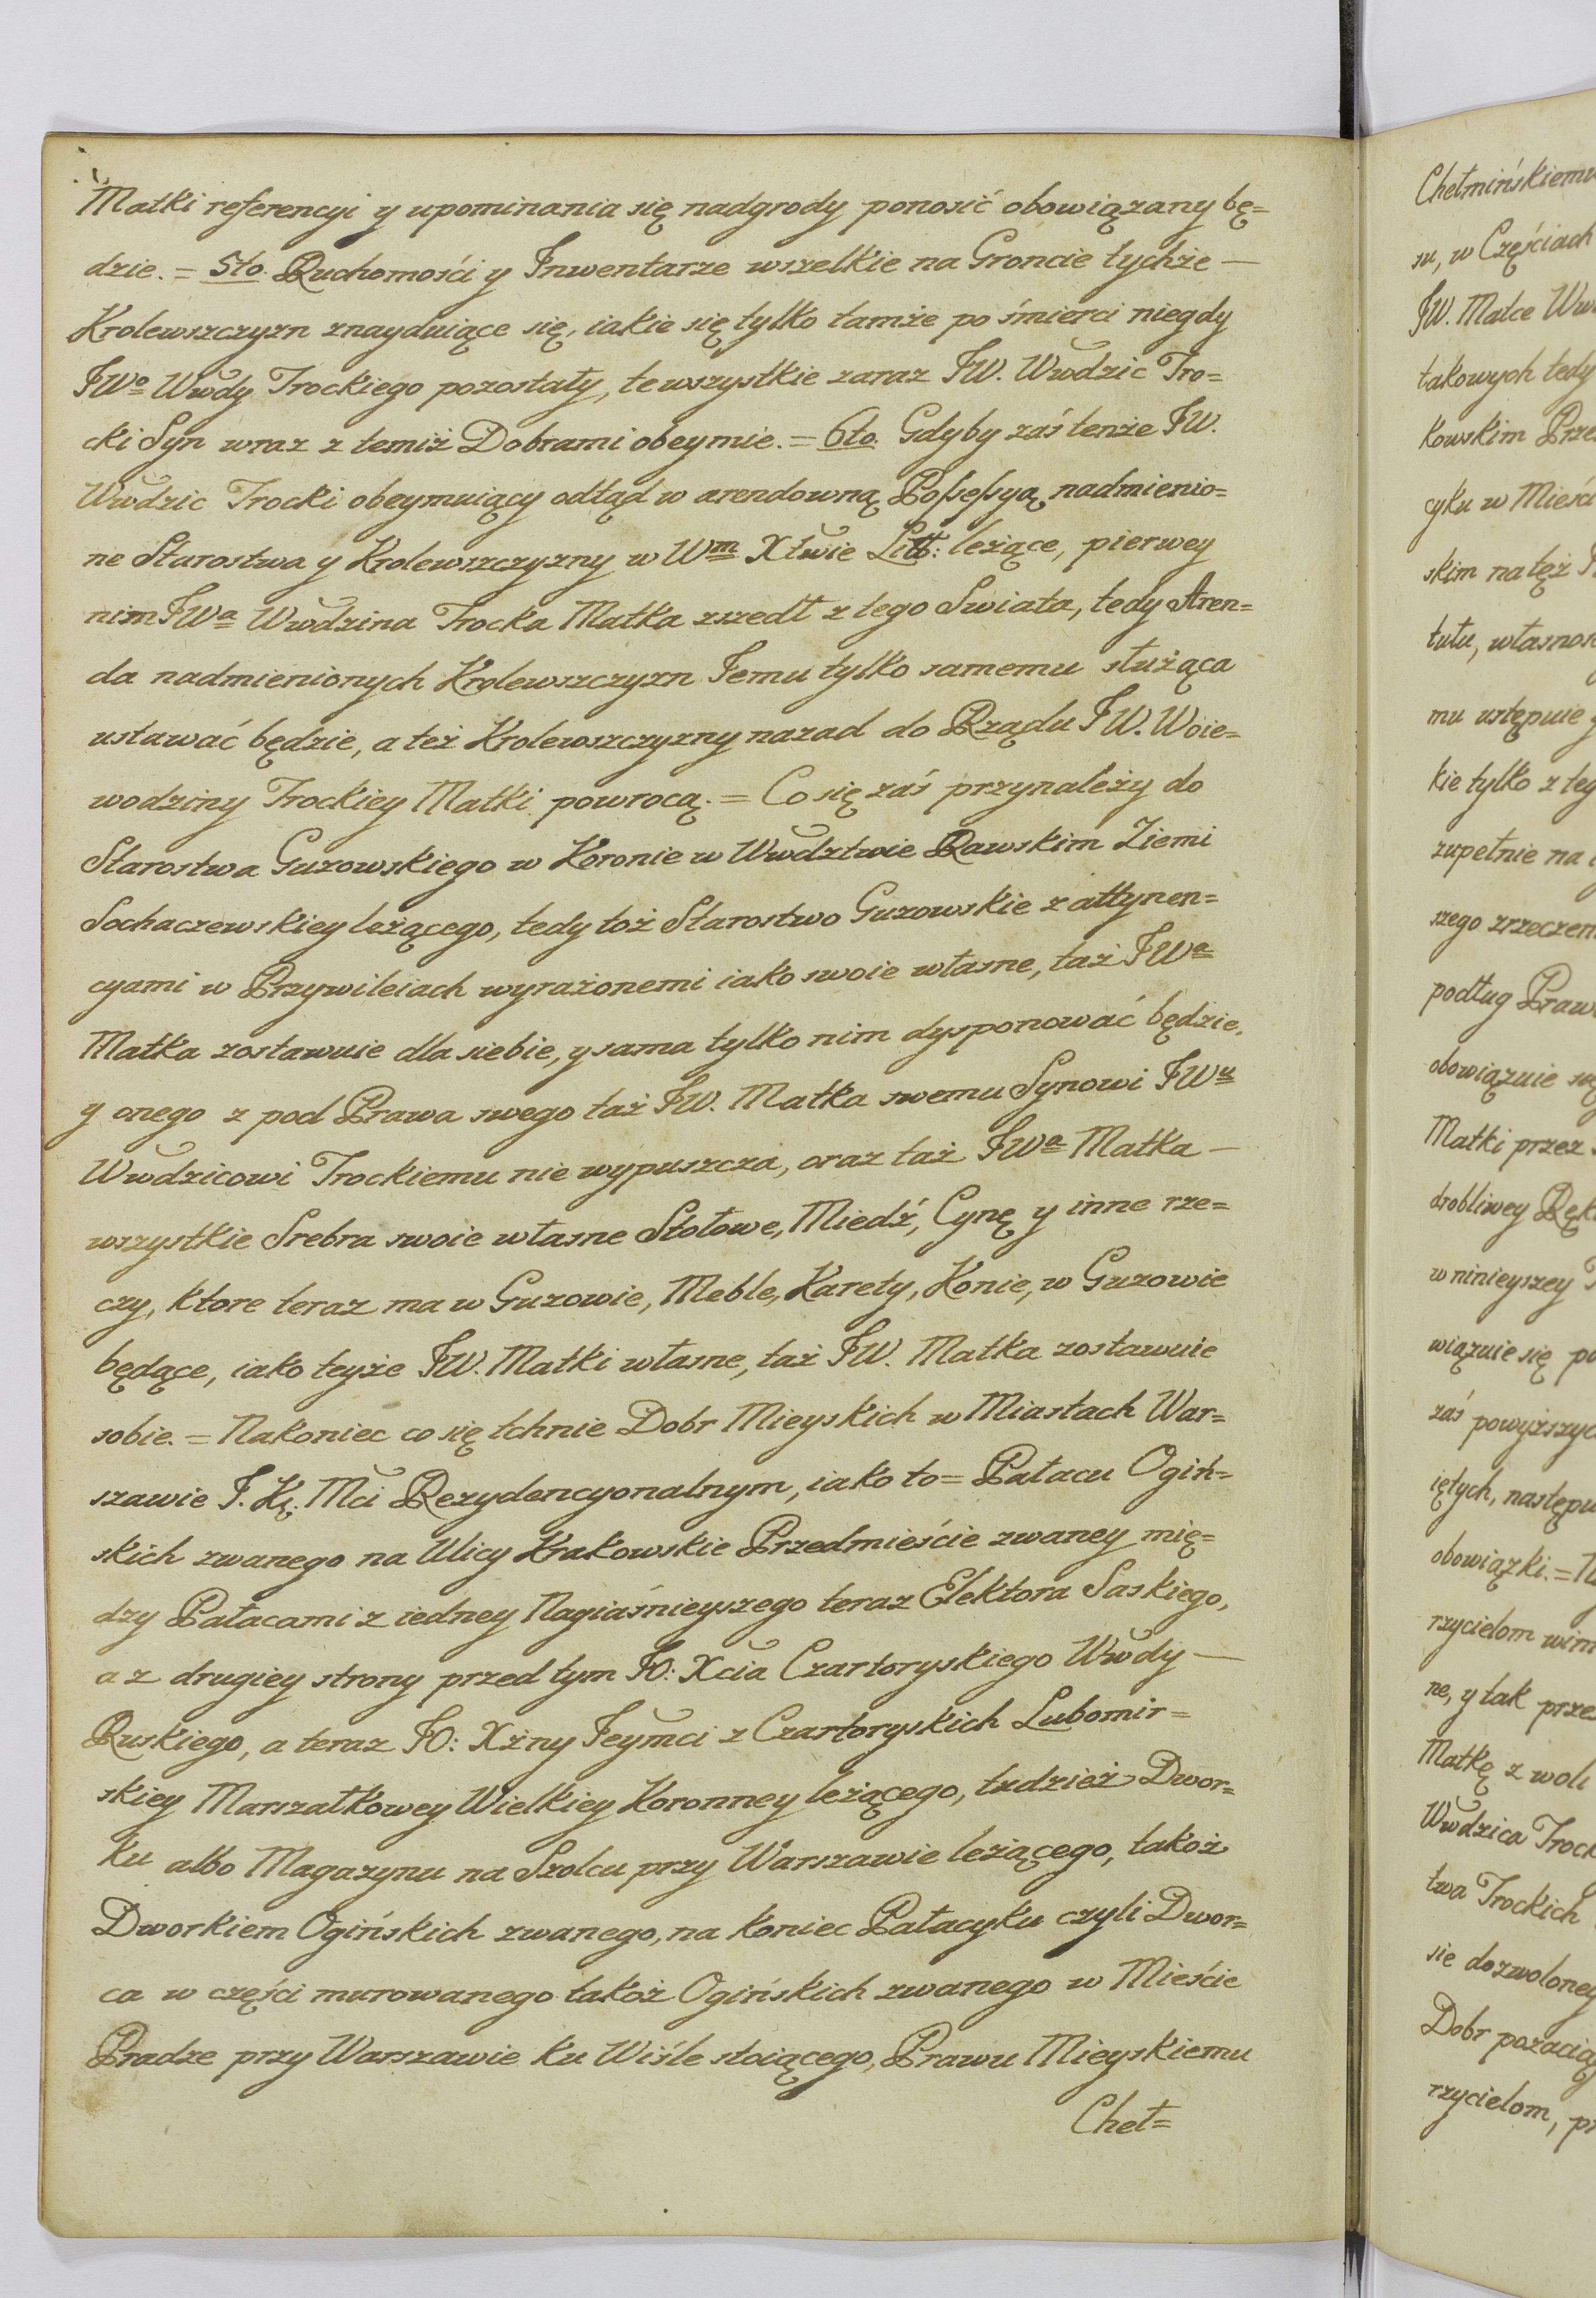 Matki referencyi y upominania się nadgrody ponosić obowiązany bę=
dzie. = 5to. Ruchomości y Inwentarze wszelkie na Groncie tychże —
Krolewszczyzn znayduiące się, iakie się tylko tamże po śmierci niegdy
JWo Wwdy Trockiego pozostały, te wszystkie zaraz JW. Wwdzic Tro=
cki Syn wraz z temiż Dobrami obeymie. = 6to. Gdyby zaś tenże JW.
Wwdzic Trocki obeymuiący odtąd w arendowną Possessyą nadmienio=
ne Starostwa y Krolewszczyzny w Wm Xtwie Litt: leżące, pierwey
nim JWa Wwdzina Trocka Matka zszedł z tego Swiata, tedy Aren=
da nadmienionych Krolewszczyzn Jemu tylko samemu służąca
ustawać będzie, a też Krolewszczyzny nazad do Rządu JW. Woie=
wodziny Trockiey Matki powrocą. = Co się zaś przynależy do
Starostwa Guzowskiego w Koronie w Wwdztwie Rawskim Ziemi
Sochaczewskiey leżącego, tedy toż Starostwo Guzowskie z attynen=
cyami w Przywileiach wyrażonemi iako swoie własne, taż JWa
Matka zostawuie dla siebie, y sama tylko nim dysponować będzie,
y onego z pod Prawa swego taż JW. Matka swemu Synowi JWu
Wwdzicowi Trockiemu nie wypuszcza, oraz taż JWa Matka —
wszystkie Srebra swoie własne Stołowe, Miedź, Cynę y inne rze=
czy, ktore teraz ma w Guzowie, Meble, Karety, Konie, w Guzowie
będące, iako teyże JW. Matki własne, taż JW. Matka zostawuie
sobie. = Nakoniec co się tchnie Dobr Mieyskich w Miastach War=
szawie J. Kę. Mci Rezydencyonalnym, iako to = Pałacu Ogiń=
skich zwanego na Ulicy Krakowskie Przedmieście zwaney mię=
dzy Pałacami z iedney Nagiaśnieyszego teraz Elektora Saskiego,
a z drugiey strony przed tym JO: Xcia Czartoryskiego Wwdy —
Ruskiego, a teraz JO: Xżny Jeymci z Czartoryskich Lubomir=
skiey Marszałkowey Wielkiey Koronney leżącego, tudzież Dwor=
ku albo Magazynu na Szolcu przy Warszawie leżącego, takoż
Dworkiem Ogińskich zwanego, na koniec Pałacyku czyli Dwor=
ca w części murowanego takoż Ogińskich zwanego w Mieście
Pradze przy Warszawie ku Wiśle stoiącego, Prawu Mieyskiemu
Cheł=
Chełmińskiemu
su, w Częściach
JW. Matce
takowych tedy
kowskim
cyku w
skim na też
tutu,
mu ustępuie
kie tylko z
zupełnie na
szego
podług
obowiązuie
Matki przez
drobliwey
w ninieyszey
wiązuie się
zaś
iętych,
obowiązki. =
rzycielom
ne, y tak
Matkę z woli
Wwdzica
twa Trockich
sie
Dobr
rzycielom,